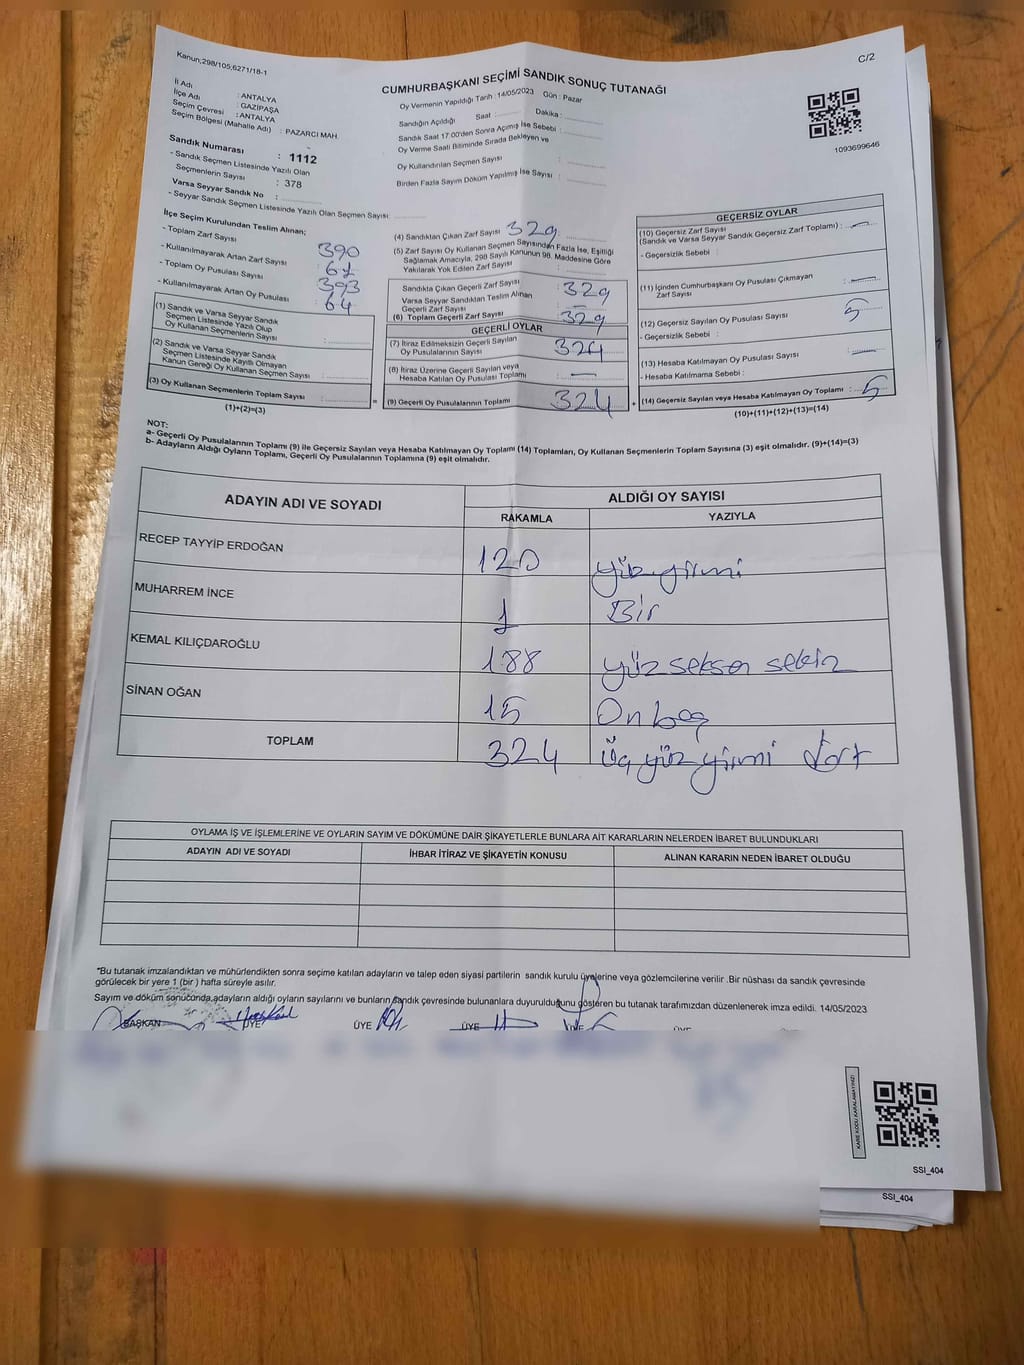 Kanun;298/105;6271/18-1
C/2
CUMHURBAŞKANI SEÇİMİ SANDIK SONUÇ TUTANAĞI
İl Adı : ANTALYA
İlçe Adı : GAZİPAŞA
Seçim Çevresi : ANTALYA
Seçim Bölgesi (Mahalle Adı) : PAZARCI MAH.
Oy Vermenin Yapıldığı Tarih : 14/05/2023 Gün : Pazar
Sandığın Açıldığı Saat : Dakika :
Sandık Saat 17:00'den Sonra Açımış İse Sebebi :
Oy Verme Saati Bitiminde Sırada Bekleyen ve
Oy Kullandırılan Seçmen Sayısı :
Birden Fazla Sayım Döküm Yapılmış İse Sayısı :
1093699646
Sandık Numarası : 1112
- Sandık Seçmen Listesinde Yazılı Olan
Seçmenlerin Sayısı : 378
Varsa Seyyar Sandık No :
- Seyyar Sandık Seçmen Listesinde Yazılı Olan Seçmen Sayısı:
İlçe Seçim Kurulundan Teslim Alınan;
- Toplam Zarf Sayısı 390
- Kullanılmayarak Artan Zarf Sayısı : 61
- Toplam Oy Pusulası Sayısı 393
- Kullanılmayarak Artan Oy Pusulası : 64
(1) Sandık ve Varsa Seyyar Sandık
Seçmen Listesinde Yazılı Olup
Oy Kullanan Seçmenlerin Sayısı :
(2) Sandık ve Varsa Seyyar Sandık
Seçmen Listesinde Kayıtlı Olmayan
Kanun Gereği Oy Kullanan Seçmen Sayısı :
(3) Oy Kullanan Seçmenlerin Toplam Sayısı :
(1)+(2)=(3)
(4) Sandıktan Çıkan Zarf Sayısı : 329
(5) Zarf Sayısı Oy Kullanan Seçmen Sayısından Fazla İse, Eşitliği
Sağlamak Amacıyla, 298 Sayılı Kanunun 98. Maddesine Göre
Yakılarak Yok Edilen Zarf Sayısı :
Sandıkta Çıkan Geçerli Zarf Sayısı : 329
Varsa Seyyar Sandıktan Teslim Alınan
Geçerli Zarf Sayısı : —
(6) Toplam Geçerli Zarf Sayısı : 329
GEÇERLİ OYLAR
(7) İtiraz Edilmeksizin Geçerli Sayılan
Oy Pusulalarının Sayısı : 324
(8) İtiraz Üzerine Geçerli Sayılan veya
Hesaba Katılan Oy Pusulası Toplamı : —
(9) Geçerli Oy Pusulalarının Toplamı : 324
GEÇERSİZ OYLAR
(10) Geçersiz Zarf Sayısı
(Sandık ve Varsa Seyyar Sandık Geçersiz Zarf Toplamı) : —
- Geçersizlik Sebebi :
(11) İçinden Cumhurbaşkanı Oy Pusulası Çıkmayan
Zarf Sayısı : —
(12) Geçersiz Sayılan Oy Pusulası Sayısı : 5
- Geçersizlik Sebebi :
(13) Hesaba Katılmayan Oy Pusulası Sayısı : —
- Hesaba Katılmama Sebebi :
(14) Geçersiz Sayılan veya Hesaba Katılmayan Oy Toplamı : 5
(10)+(11)+(12)+(13)=(14)
NOT:
a- Geçerli Oy Pusulalarının Toplamı (9) ile Geçersiz Sayılan veya Hesaba Katılmayan Oy Toplamı (14) Toplamları, Oy Kullanan Seçmenlerin Toplam Sayısına (3) eşit olmalıdır. (9)+(14)=(3)
b- Adayların Aldığı Oyların Toplamı, Geçerli Oy Pusulalarının Toplamına (9) eşit olmalıdır.
ADAYIN ADI VE SOYADI ALDIĞI OY SAYISI
RAKAMLA YAZIYLA
RECEP TAYYİP ERDOĞAN 120 yüz yirmi
MUHARREM İNCE 1 Bir
KEMAL KILIÇDAROĞLU 188 yüz seksen sekiz
SİNAN OĞAN 15 On beş
TOPLAM 324 Üç yüz yirmi dört
OYLAMA İŞ VE İŞLEMLERİNE VE OYLARIN SAYIM VE DÖKÜMÜNE DAİR ŞİKAYETLERLE BUNLARA AİT KARARLARIN NELERDEN İBARET BULUNDUKLARI
ADAYIN ADI VE SOYADI İHBAR İTİRAZ VE ŞİKAYETİN KONUSU ALINAN KARARIN NEDEN İBARET OLDUĞU
*Bu tutanak imzalandıktan ve mühürlendikten sonra seçime katılan adayların ve talep eden siyasi partilerin sandık kurulu üyelerine veya gözlemcilerine verilir .Bir nüshası da sandık çevresinde
görülecek bir yere 1 (bir ) hafta süreyle asılır.
Sayım ve döküm sonucunda,adayların aldığı oyların sayılarını ve bunların sandık çevresinde bulunanlara duyurulduğunu gösteren bu tutanak tarafımızdan düzenlenerek imza edildi. 14/05/2023
BAŞKAN ÜYE ÜYE ÜYE ÜYE ÜYE ÜYE
KARE KODU KARALAMAYINIZ!
SSI_404
SSI_404